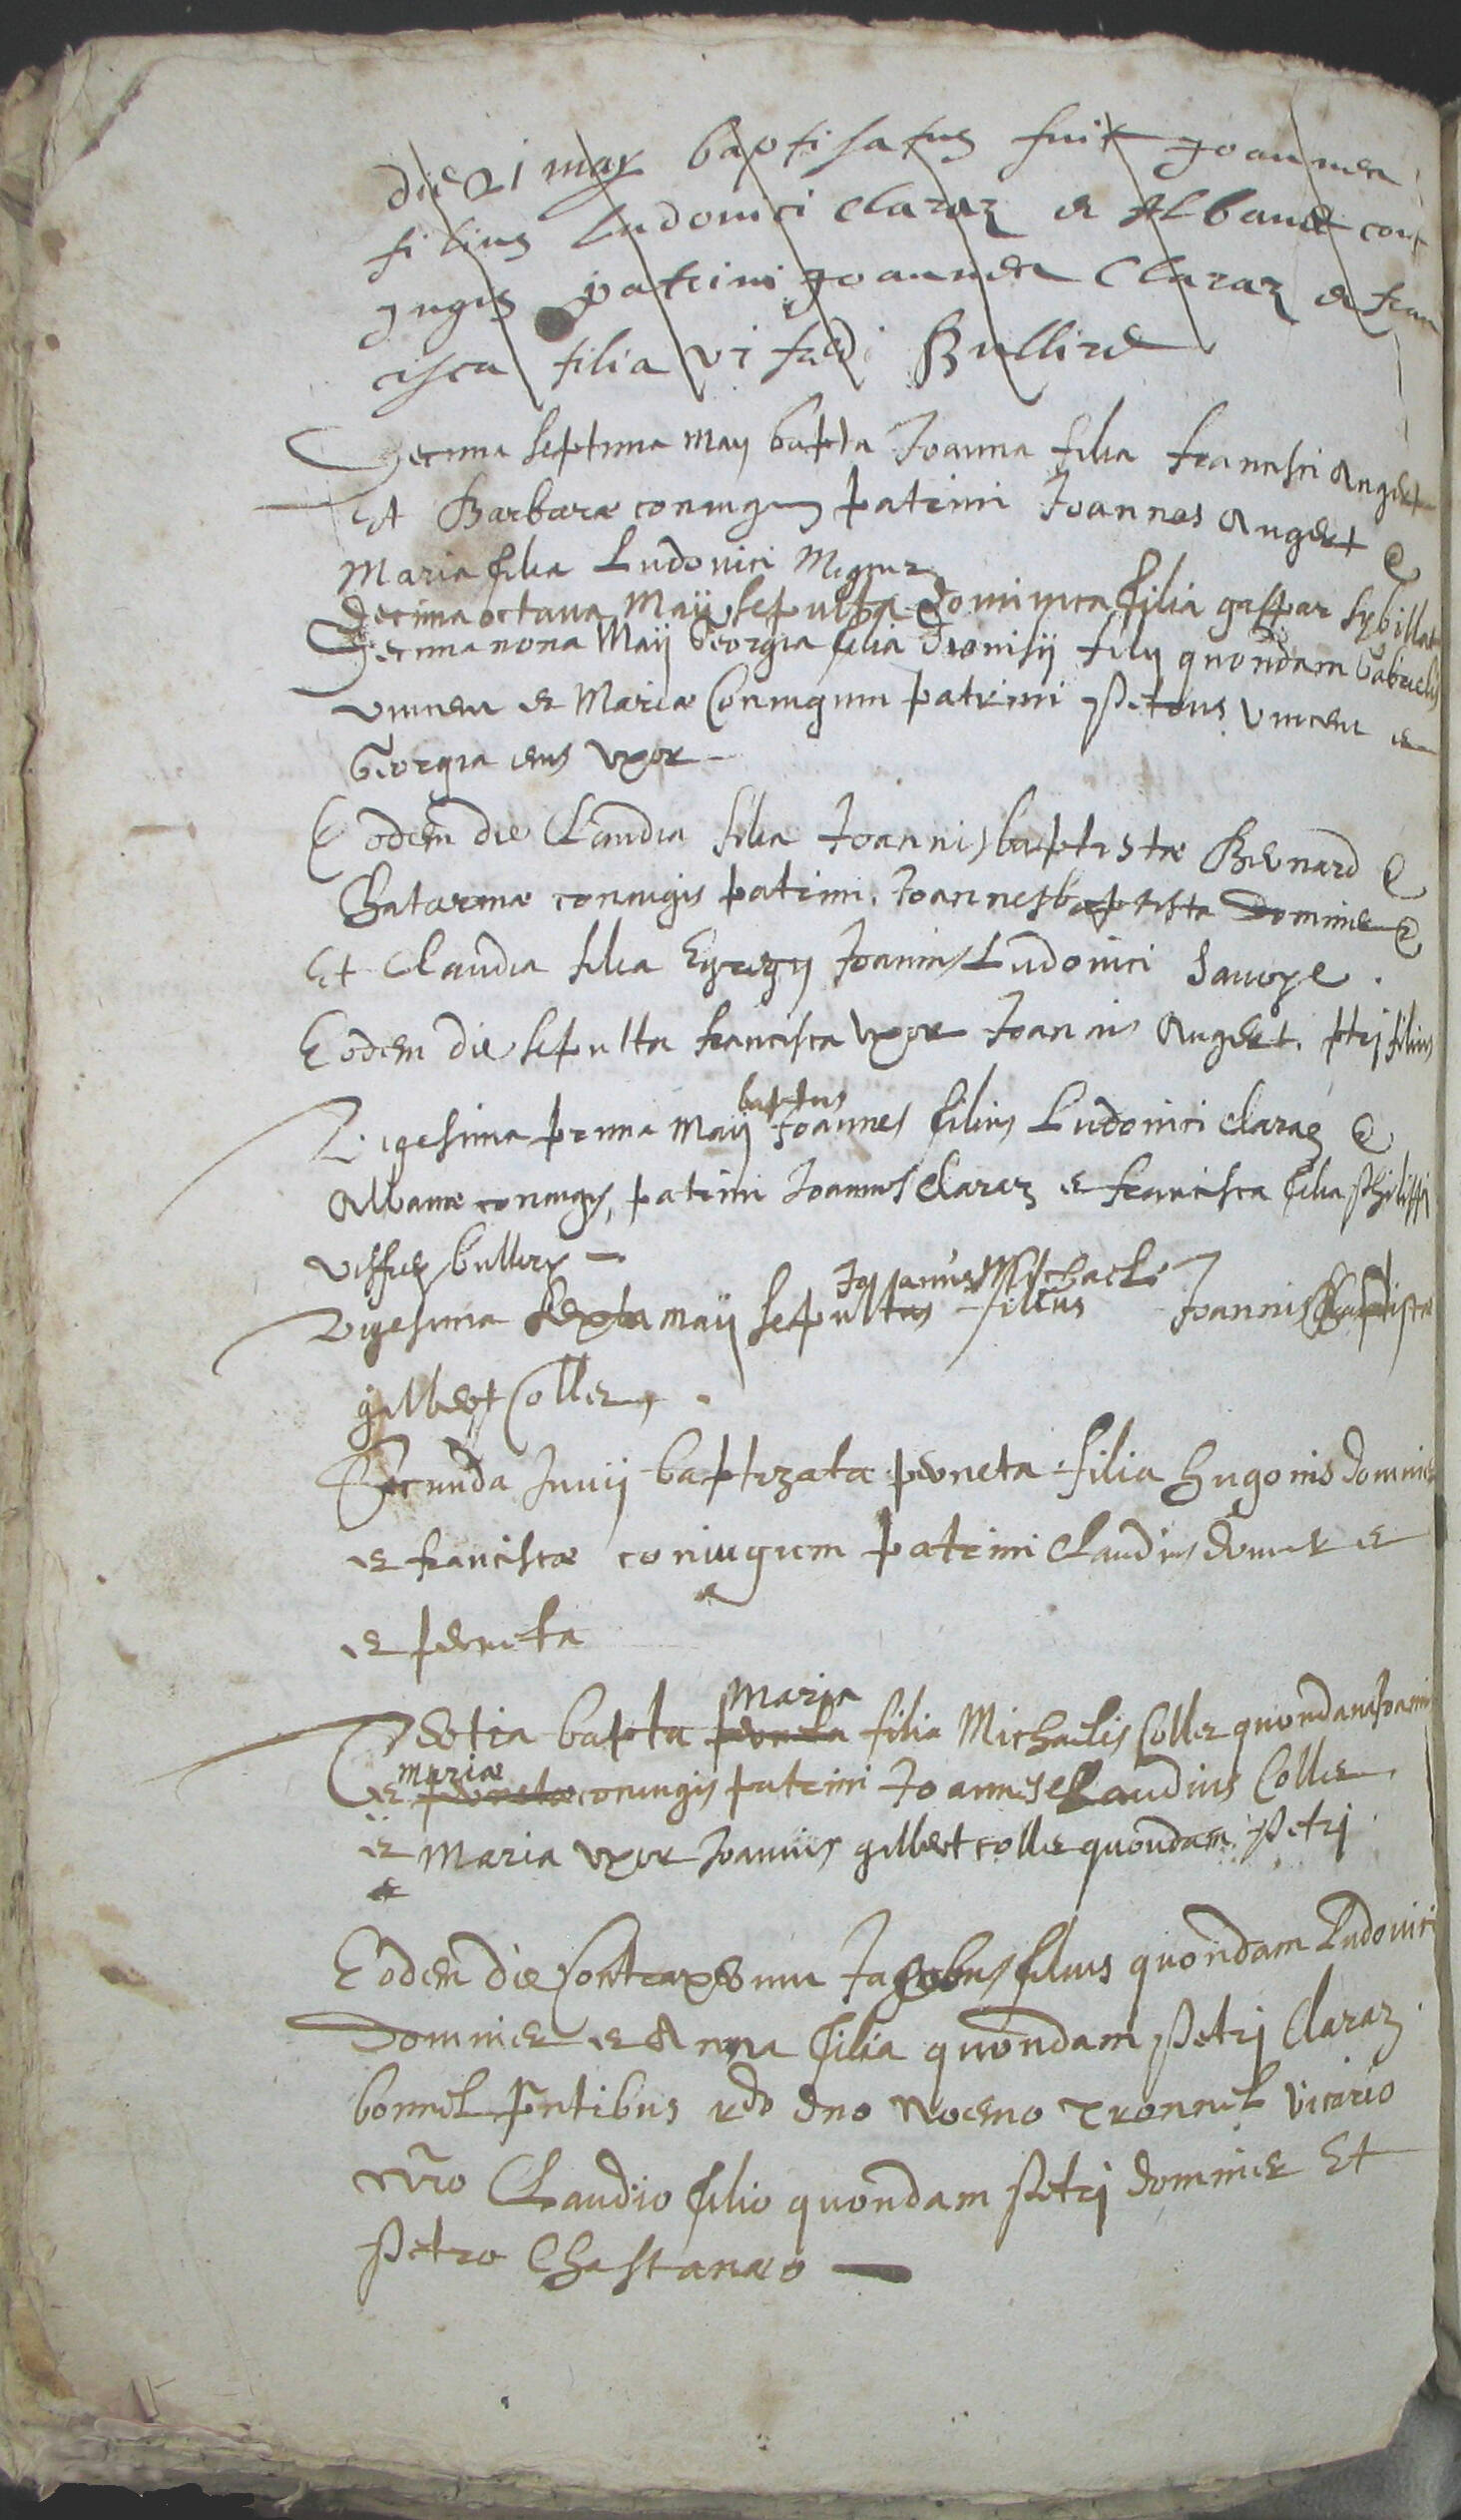 die 21 may baptisatus fuit Joannes
filius Ludovici Claraz et Albane con
jugis patrini Joannes Claraz et fran
cisca filia vifredi Bullire
Decima septima May bapta Joanna filia francisci Anget
Et Barbaræ conjugum patrini Joannes Anget &
Maria filia Ludovici
Decima octava Maij sepulta dominica filia gaspar Sybillat
Decima nona Maij Georgia filia dionisij filij quondam Gabrielis
vincen et Mariæ Conjugum patrini Petrus vincen et
Georgia eius uxor
Eodem die Claudia filia Joannisbaptistæ Bernard &
Catarinæ conjugis patrini Joannesbaptista Dominier
Et Claudia filia Egregij Joannis Ludovici Savoye.
Eodem die sepulta francisca uxor Joannis Anget. ptrj filius
baptus
Vigesima prima Maij Joannes filius Ludovici Claraz &
Albanæ conjugis, patrini Joannes Claraz et francisca filia Philippi
viffrey bullery
Joannes Michael
Vigesima sexta maij sepultus filius Joannis Baptistæ
gilbert Collier.
Secunda Junij baptizata perneta filia hugonis dominier
et franciscæ coniugum patrini Claudius domier et
et perneta
Maria
Tertia bapta perneta filia Michaelis Collier quondam Joannis
mariæ
et pernetæ conjugis patrini Joannes Claudius Collier
et Maria uxor Joannis gilbert collier quondam Petrj
Eodem die Contraxerunt Jacobus filius quondam Ludovici
Dominier et Anna filia quondam Petrj Claraz
bonnet pntibus rdo dno vicario
nro Claudio filio quondam Petrj dominier Et
Petro Chastanæo